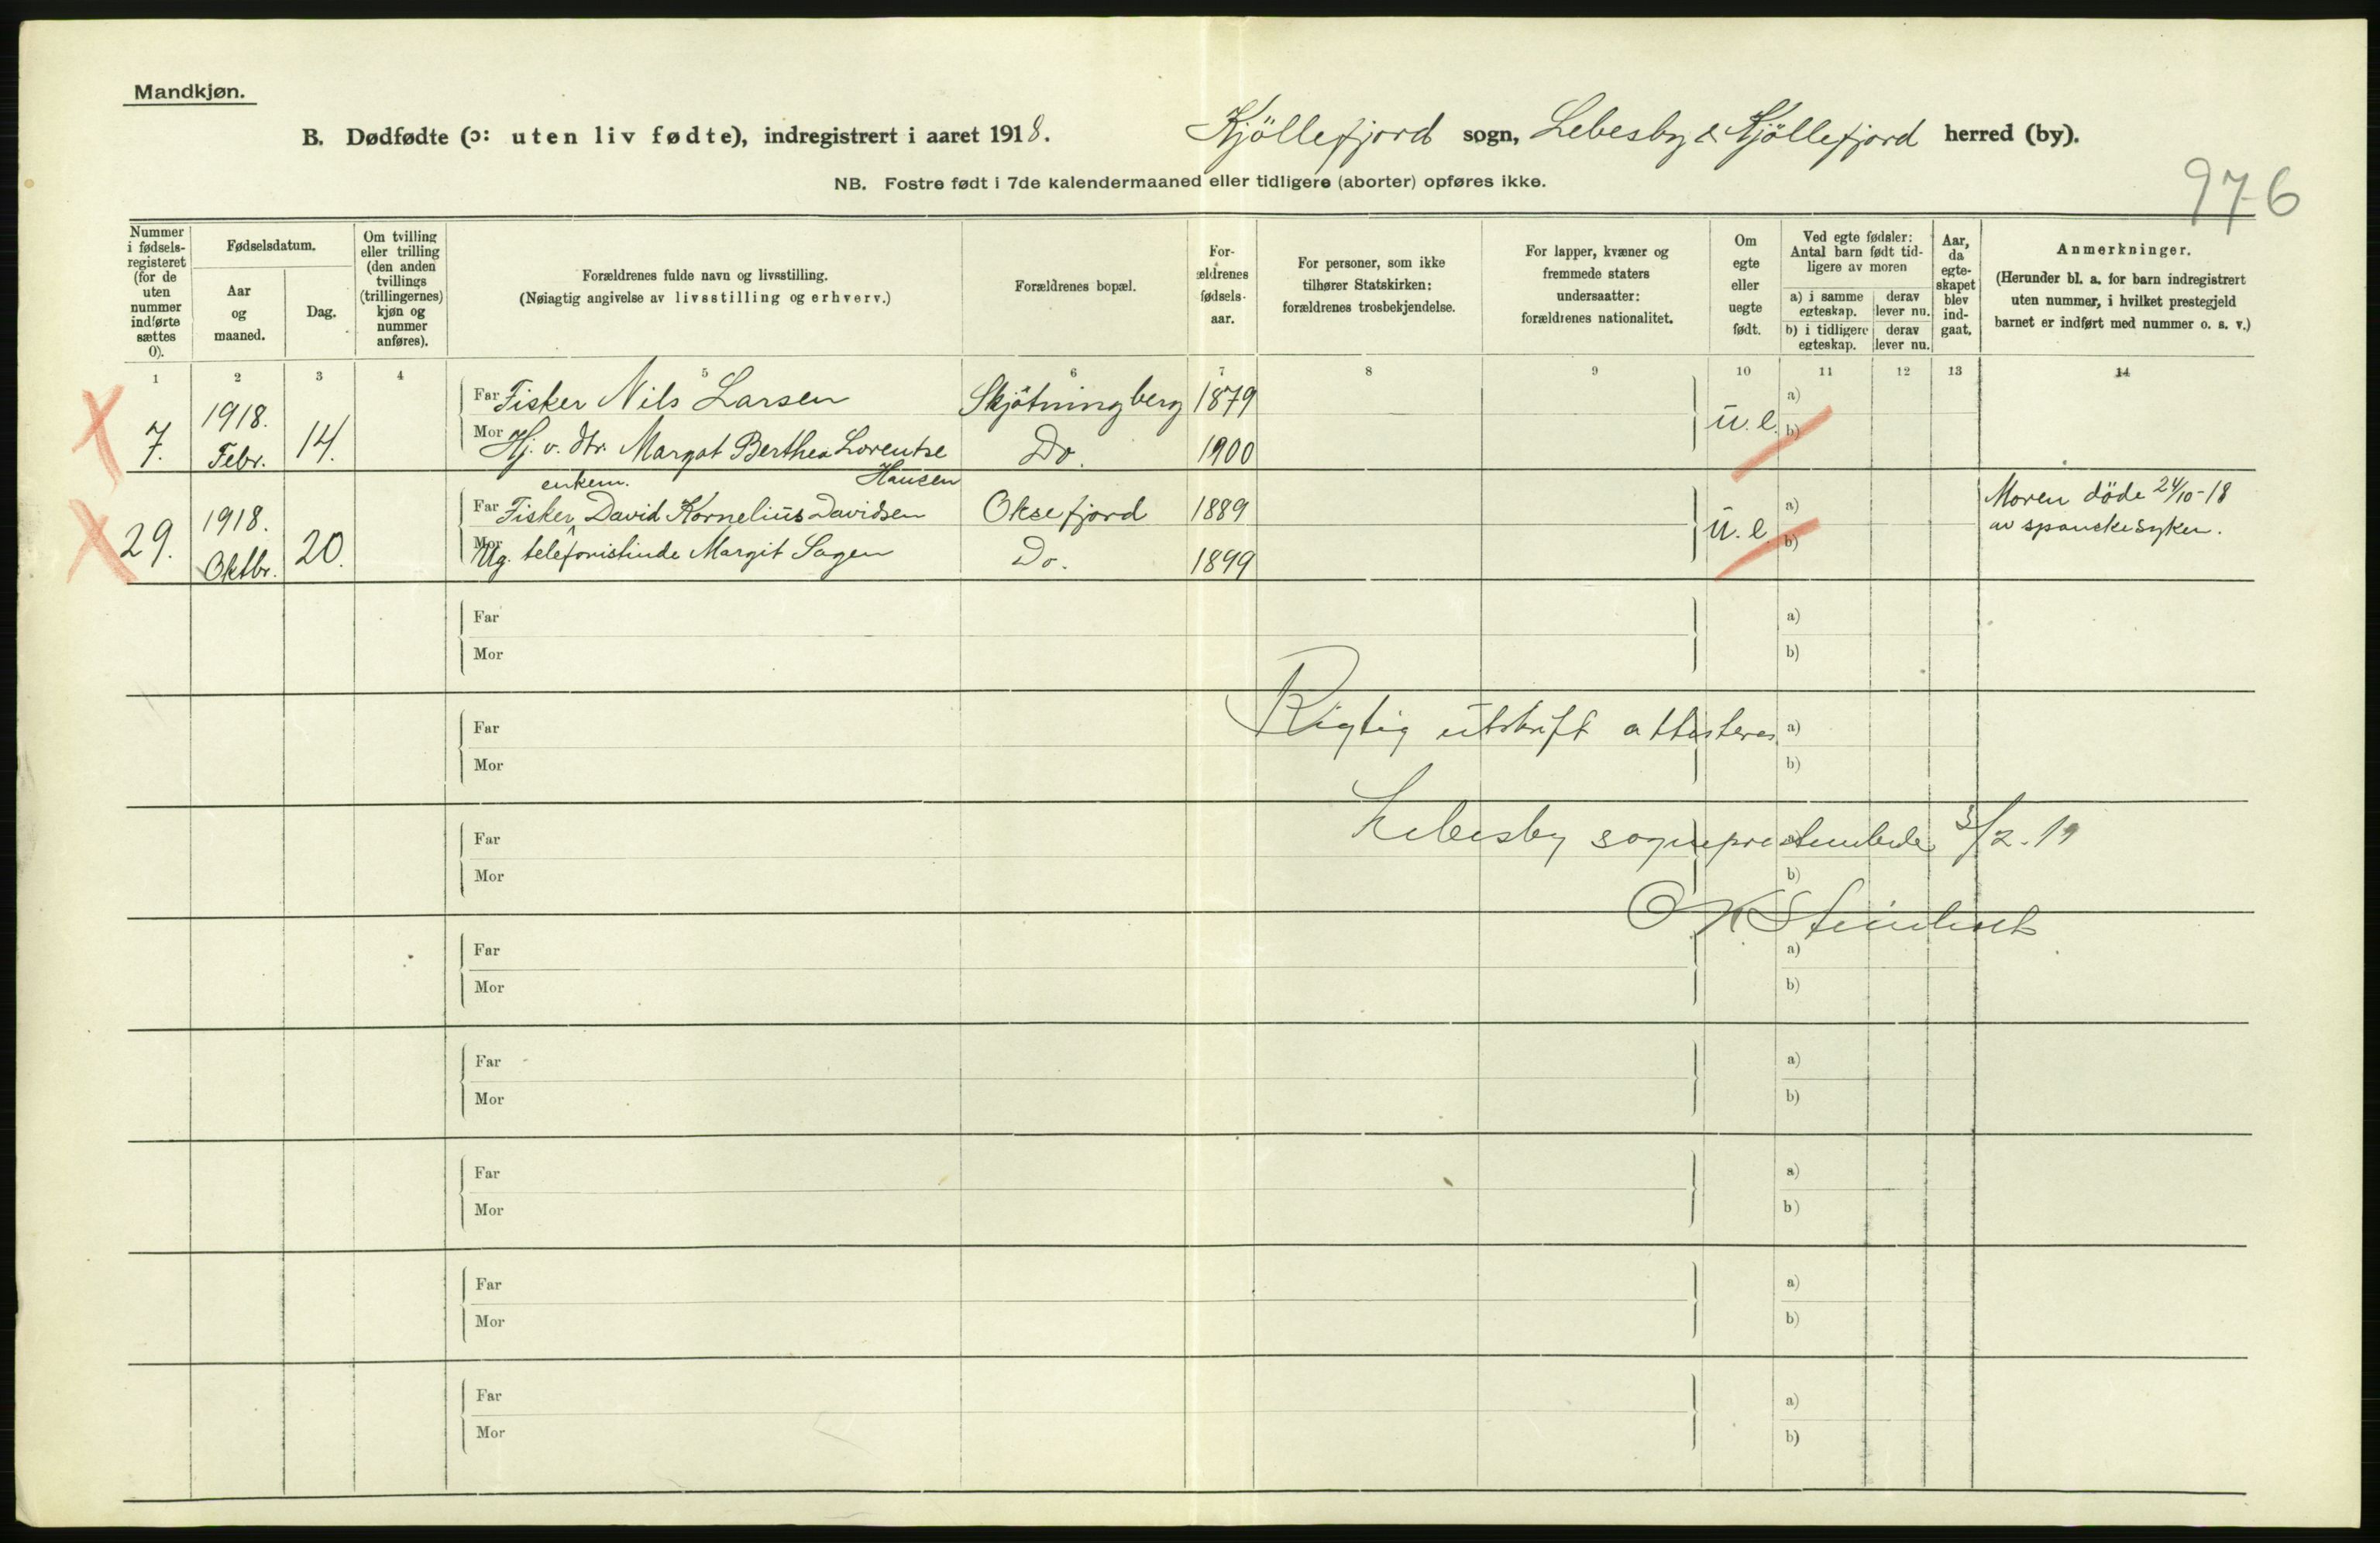 Mandkjøn.
B. Dødfødte (ɔ: uten liv fødte), indregistrert i aaret 1918. Kjöllefjord sogn, Lebesby & Kjöllefjord herred (by).
NB. Fostre født i 7de kalendermaaned eller tidligere (aborter) opføres ikke.
976
Nummer i fødsels-registeret (for de uten nummer indførte sættes 0).
Fødselsdatum.
Aar og maaned.
Dag.
Om tvilling eller trilling (den anden tvillings (trillingernes) kjøn og nummer anføres).
Forældrenes fulde navn og livsstilling.
(Nøiagtig angivelse av livsstilling og erhverv.)
Forældrenes bopæl.
For-ældrenes fødsels-aar.
For personer, som ikke tilhører Statskirken: forældrenes trosbekjendelse.
For lapper, kvæner og fremmede staters undersaatter: forældrenes nationalitet.
Om egte eller uegte født.
Ved egte fødsler: Antal barn født tid-ligere av moren
a) i samme egteskap. derav lever nu.
b) i tidligere egteskap. derav lever nu.
Aar, da egte-skapet blev ind-gaat.
Anmerkninger.
(Herunder bl. a. for barn indregistrert uten nummer, i hvilket prestegjeld barnet er indført med nummer o. s. v.)
1 2 3 4 5 6 7 8 9 10 11 12 13 14
7. 1918. Febr. 14. Far Fisker Nils Larsen Skjötningberg 1879 u.e. a)
Mor Hj. v. dtr. Margot Berthea Lorentse Hansen Do. 1900 b)
29. 1918. Oktbr. 20. Far Fisker, enkem. David Kornelius Davidsen Oksefjord 1889 u.e. a) Moren döde 24/10-18
Mor Ug. telefonistinde Margit Sagen Do. 1899 b) av spanskesyken.
Far a)
Mor b)
Far Rigtig utskrift attesteres a)
Mor b)
Far Lebesby sogneprestembede 3/2.19
Mor b)
Far a)
Mor b)
Far a)
Mor b)
Far a)
Mor b)
Far a)
Mor b)
Far a)
Mor b)